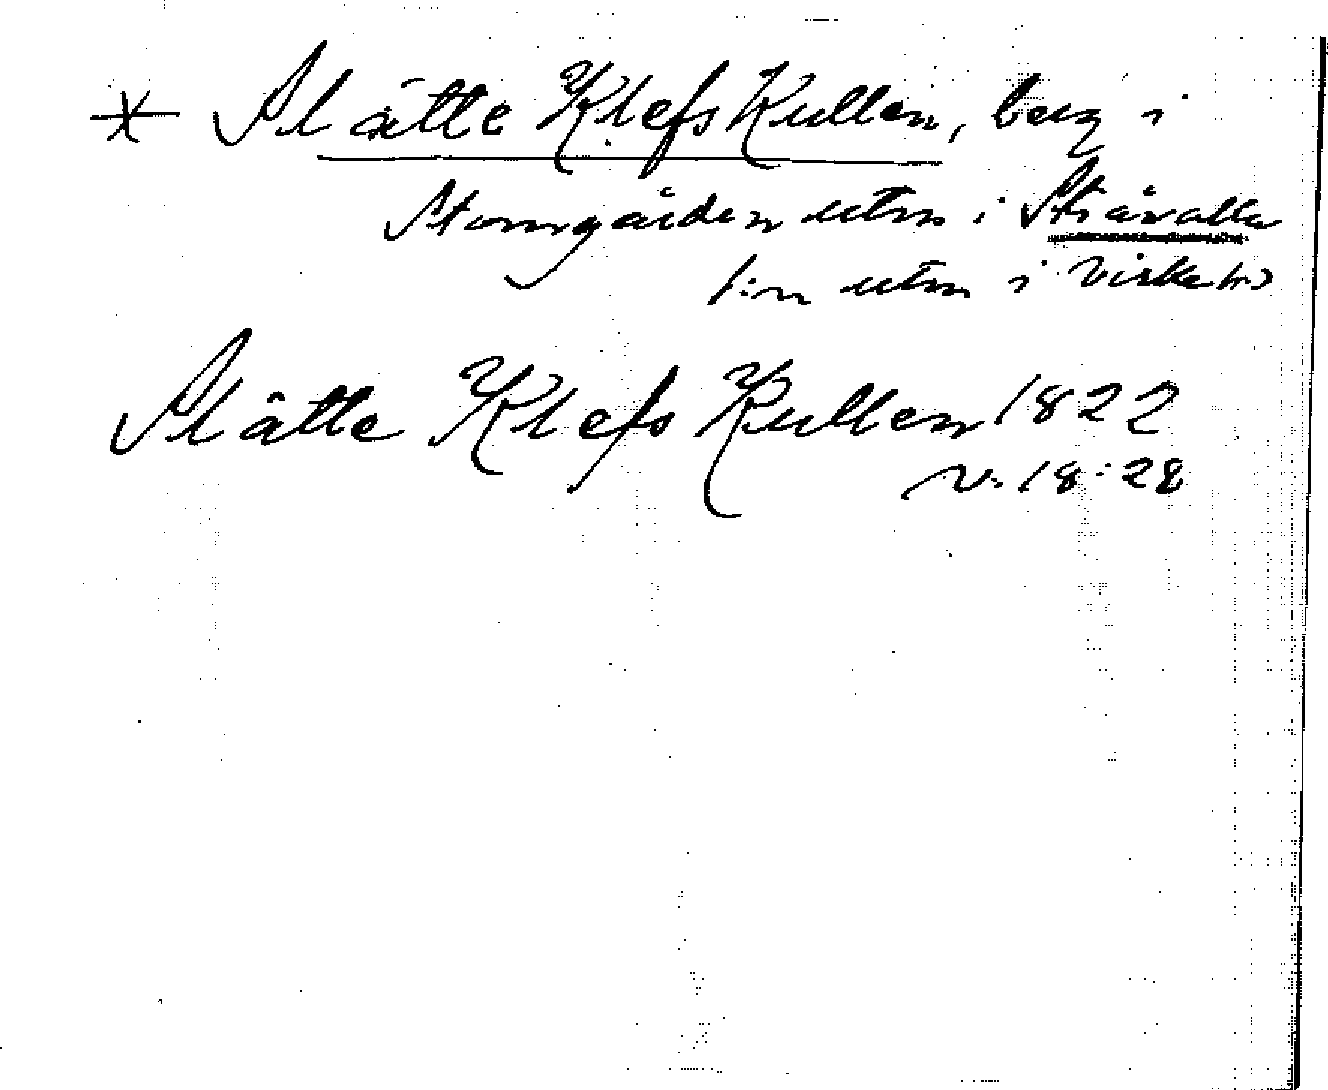 * Slätte Klefs Kullen, berg i
Storegården utm i Stråvalla
s:n utm i Viske hd
Slätte Klefs Kullen 1822
v. 18-28